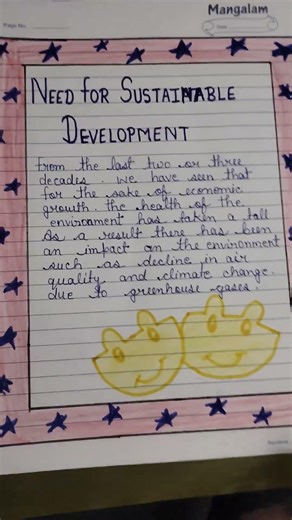 Mangalam
Page No.
Date
NEED FOR SUSTAINABLE
DEVELOPMENT
from the last two or three
decades. We have seen that
for the sake of economic
growth. the health of the
environment has taken a tall
As a result there has been
an impact on the environment
such as decline in air
quality and climate change.
due to greenhouse gases.